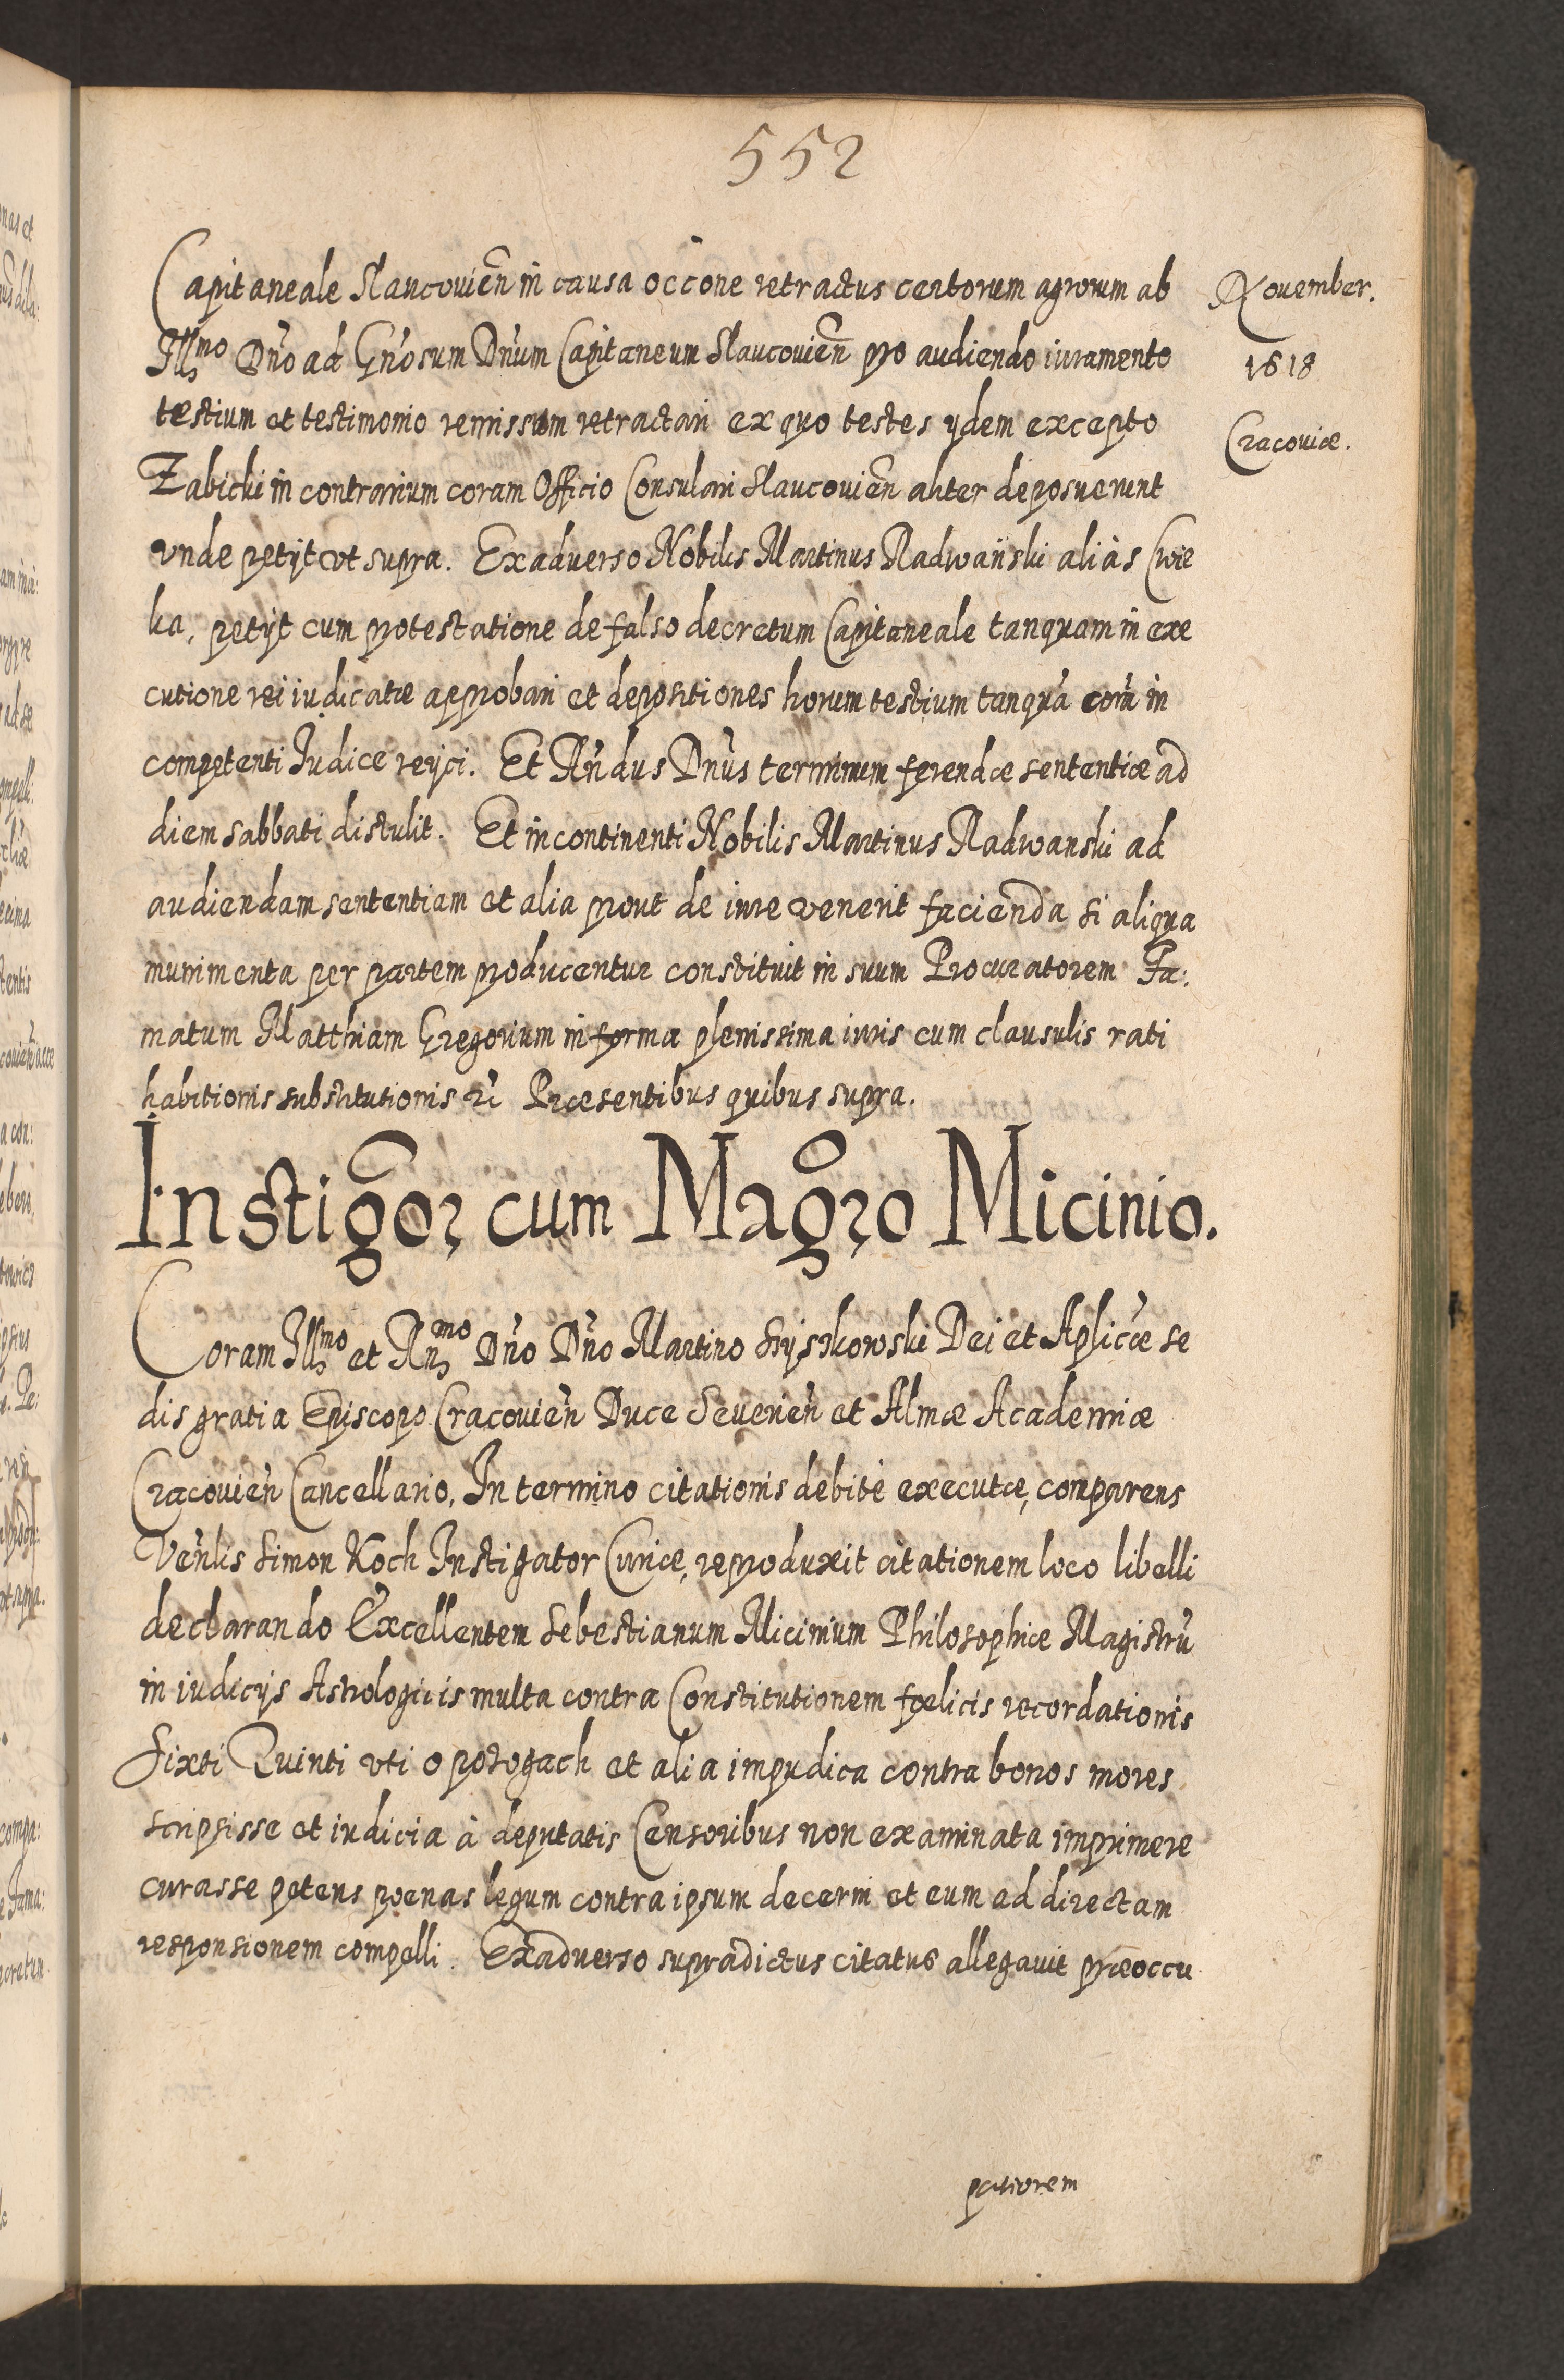 552
November.
1618
Cracoviæ.
Capitaneale Slaucouien̄ in causa occōne retractus certorum agrorum ab
Illmo Dño ad Gñosum Dñum Capitaneum Slaucouien̄ pro audiendo iuramento
testium et testimonio remissum retractari ex quo testes ÿdem excepto
Zabicki in contrarium coram Officio Consulari Slaucouien̄ aliter deposuerunt
vnde petÿt vt supra. Ex aduerso Nobilis Martinus Radwański aliàs Cwie
ka, petÿt cum protestatione de falso decretum Capitaneale tanquam in exe
cutione rei iudicatæ approbari et depositiones horum testium tanquā corā in
competenti Iudice reÿci. Et Rñdus Dñus terminum ferendæ sententiæ ad
diem sabbati distulit. Et in continenti Nobilis Martinus Radwanski ad
audiendam sententiam et alia prout de iure venerit facienda si aliqua
munimenta per partem producentur constituit in suum Procuratorem Fa:
matum Matthiam Gregorium in forma plenissima iuris cum clausulis rati
habitionis substitutionis Præsentibus quibus supra.
Instigōr cum Magr̄o Micinio.
Coram Illmo et Rñmo Dño Dño Martino Szÿszkowski Dei et Aplicæ se
dis gratia Episcopo Cracouień Duce Seuerień et Almæ Academiæ
Cracouień Cancellario, In termino citationis debitè executæ, comparens
Veñlis Simon Koch Instigator Curiæ, reproduxit citationem loco libelli
declarando Excellentem Sebestianum Micinium Philosophiæ Magistrū
in iudicÿs Astrologicis multa contra Constitutionem fœlicis recordationis
Sixti Quinti vti o pozogach et alia impudica contra bonos mores
scripsisse et iudicia à deputatis Censoribus non examinata imprimere
curasse petens pœnas legum contra ipsum decerni et eum ad directam
responsionem compelli. Ex aduerso supradictus citatus allegauit præoccu
patiorem